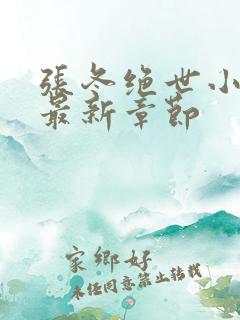 張冬绝世小
最新章節
家鄉好
未经同意禁止转载